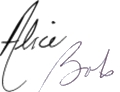 Alice
Bob